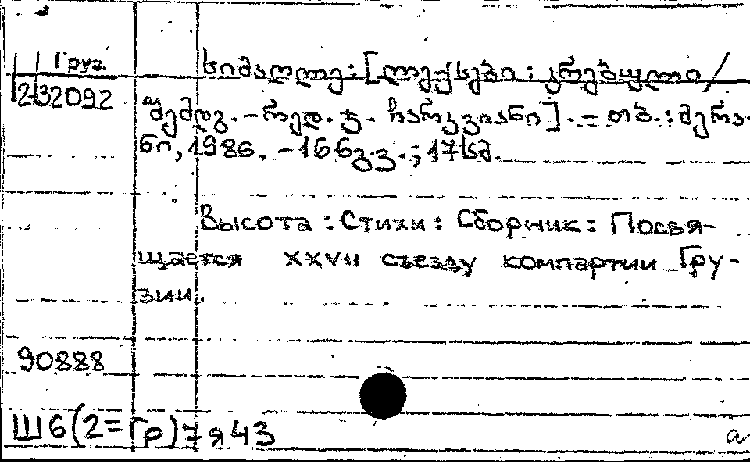 Груз.
232092
სიმაღლე: [ლექსები: კრებული /
შემდგ. - რედ. ჯ. ჩარკვიანი]. - თბ.: მერა-
ნი, 1986. - 166 გვ.; 17 სმ.
Высота: Стихи: Сборник: Посвя-
щается XXVII съезду компартии Гру-
зии.
90888
Ш6(2=Гр)7я43